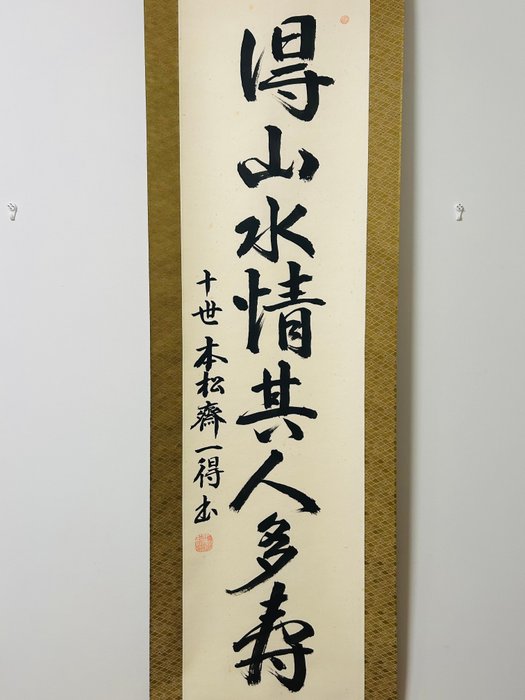 得山水情其人多寿
十世本松齋一得書